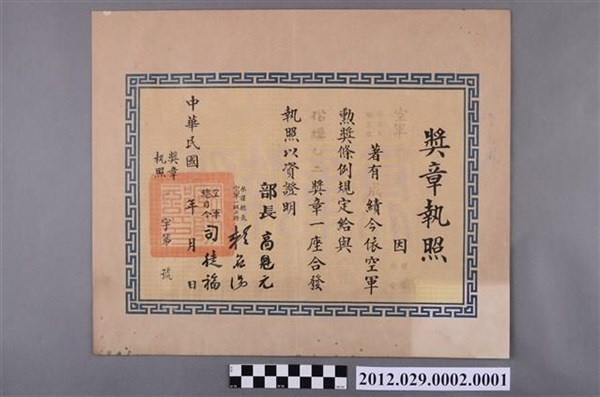 獎章執照
空軍
因
著有 績今依空軍
勳獎條例規定給與
獎章一座合發
執照以資證明
部長高魁元
參謀總長
賴名湯
空軍
總司令
司徒福
中華民國 年 月 日
獎章
執照
字第 號
2012.029.0002.0001